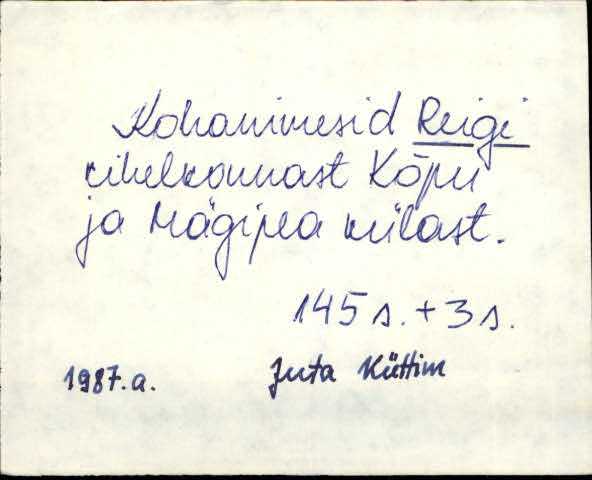 Kohanimesid Reigi
kihelkonnast Kõpu
ja Mägipea külast.
145 s. + 3 s.
1987. a. Juta Küttim